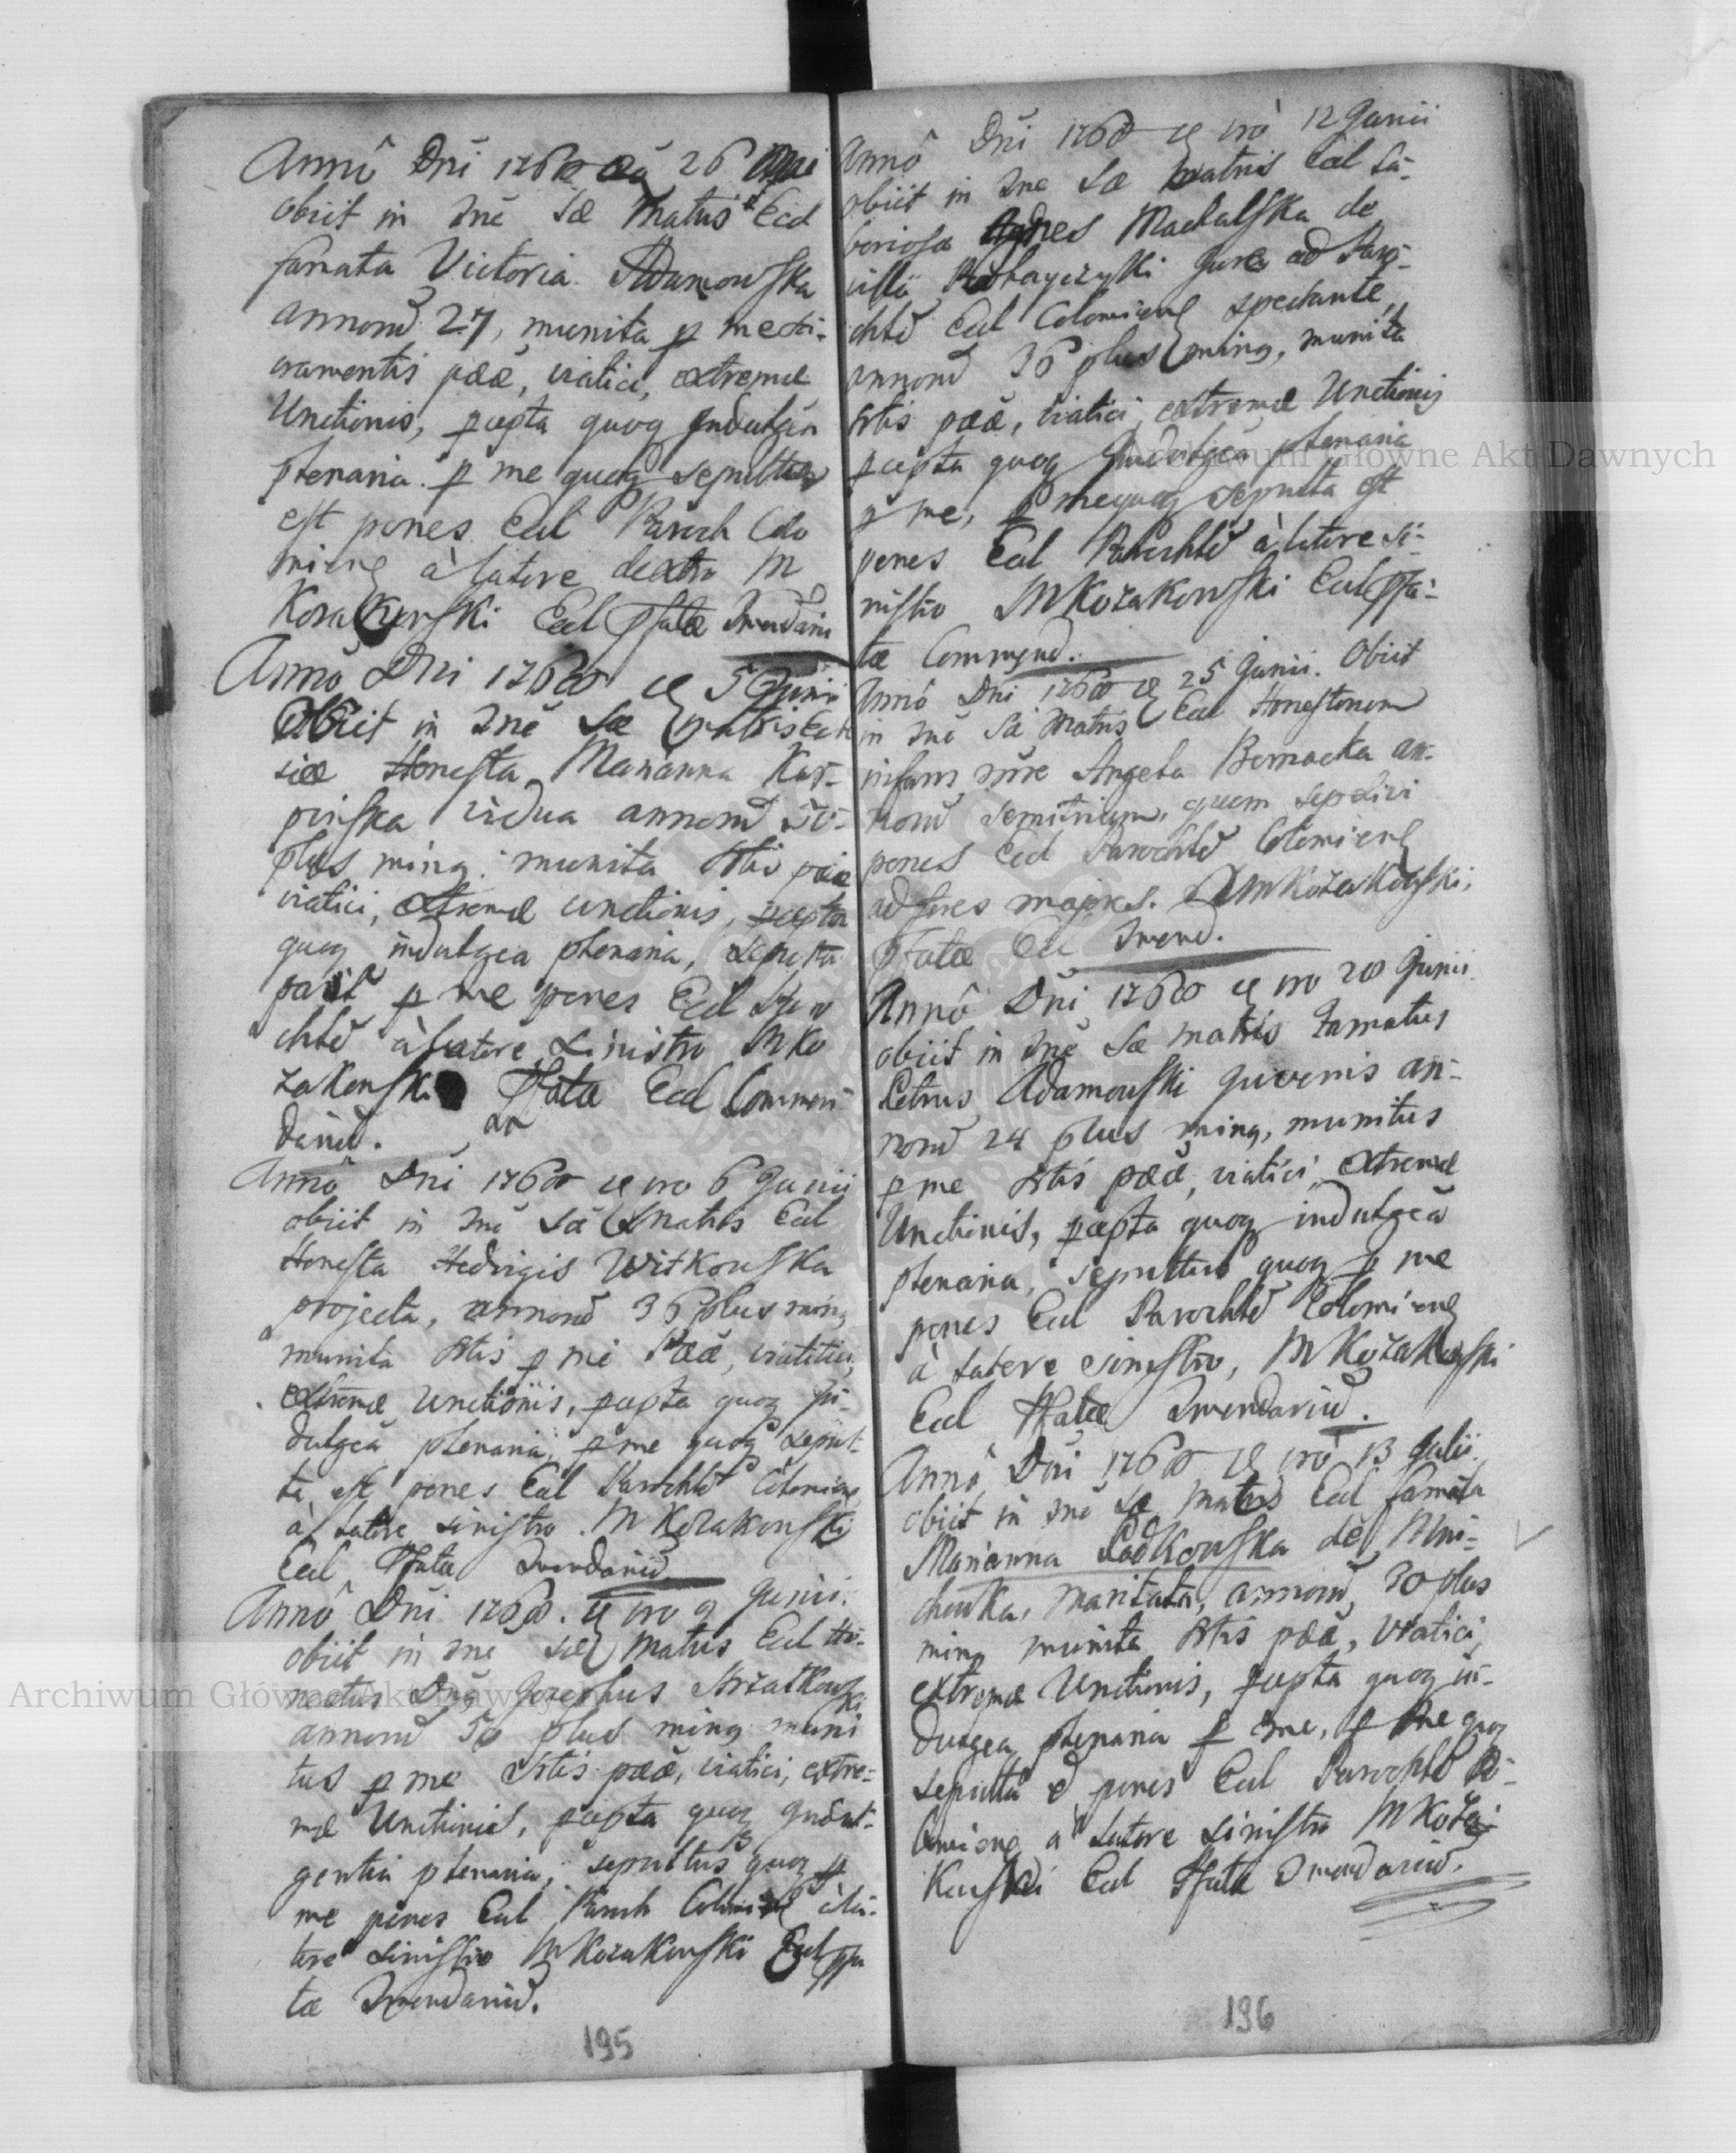 Annô Dni 1760 26
obiit in Dnê Sæ Matris Ecd
famata Victoria Adamowska
annorũ 27, munita p me sa-
cramentis pææ, viatici, extremæ
Unctionis, pcepta quoq Indulgea
plenaria. p me quoq sepulta
est penes Eccl Paroch Colo
miens à latere dextro M
Kozakowski Eccl Pfatæ Cmendariu
Annô Dni 1760 5 Junii
Obiit in Dnê Sæ Matris Eccle
siæ Honesta Marianna Kar-
pinska vidua annorũ
plus minq munita Sctis pææ
viatici, extremæ unctionis, pcepta
quoq indulgea plenaria, sepulta
p me penes Eccl Paro
chlẽ à latere sinistro M Ko
zakowski Pfatæ Eccl Commen
dariũ.
Annô Dni 1760 vrò 6 Junii
obiit in Dnê Sæ Matris Eccl
Honesta Hedvigis Witkowska
projecta, annorũ 36 plus minq
munita Sctis p me Pææ, viatici,
extremæ Unctionis, pcepta quoq In-
dulgeã plenaria, p me quoq sepul-
ta est penes Eccl Parochlẽ Colomiens
à latere sinistro. M Kozakowski
Eccl Pfatæ Cmendariũ
Annô Dni 1760. vrò 9 Junii.
obiit in Dne Sæ Matris Eccl Ho-
nestus Dnũs Josephus Strzałkows
ki
annorũ 50 plus minq muni
tus p me Sctis pææ, viatici, extre-
mæ Unctionis, pcepta quoq Indul-
gentia plenaria, sepultus quoq p
me penes Eccl Paroch Colomiens à la-
tere sinistro M Kozakowski Eccl pfa
tæ Cmendariũ.
195
Annô Dni 1760 vrò 12 Junii
obiit in Dne Sæ Matris Eccl La-
boriosa Agnes Machalska de
villa jure ad Paro-
chlẽ Eccl Colomiens spectante,
annorũ 36 plus minq, munita
Sctis pææ, viatici, extremæ Unctionis
pcepta quoq Indulgeã plenaria
p me, p mequoq sepulta est
penes Eccl Parochlẽ à latere si-
nistro M Kozakowski Eccl pfa-
tæ Commend.
Annô Dni 1760 25 Junii. Obiit
in Dnê Sæ Matris Eccl Honestorum
infans nõre Angela Biernacka an-
norũ semitrium, quem sepelivi
penes Eccl Parochlẽ Colomiens
ad fores majores. M Kozakowski,
Pfatæ Eccl Cmend.
Annô Dni 1760 vrò 28 Junii
obiit in Dnê Sæ Matris Famatus
Petrus Adamowski juvenis an-
norũ 24 plus minq, munitus
p me Sctis pææ, viatici, extremæ
Unctionis, pcepta quoq indulgeã
plenaria, sepultus quoq p me
penes Eccl Parochlẽ Colomiens
à latere sinistro, M Kozakowski
Eccl Pfatæ Cmendariũ.
Annô Dni 1760 vrò 13 Julii.
obiit in Dnê Sæ Matris Eccl famata
Marianna Sadkowska de Mni-
chowka, maritata, annorũ, 30 plus
minq munita Sctis pææ, Viatici,
extremæ Unctionis, pcepta quoq in-
dulgea plenaria p me, p me quoq
sepulta ẽ penes Eccl Parochlẽ Co-
lomiens à latere sinistro M Koza-
kowski Eccl Pfatæ Cmendariũ.
196
Archiwum Główne Akt Dawnych
Archiwum Główne Akt Dawnych